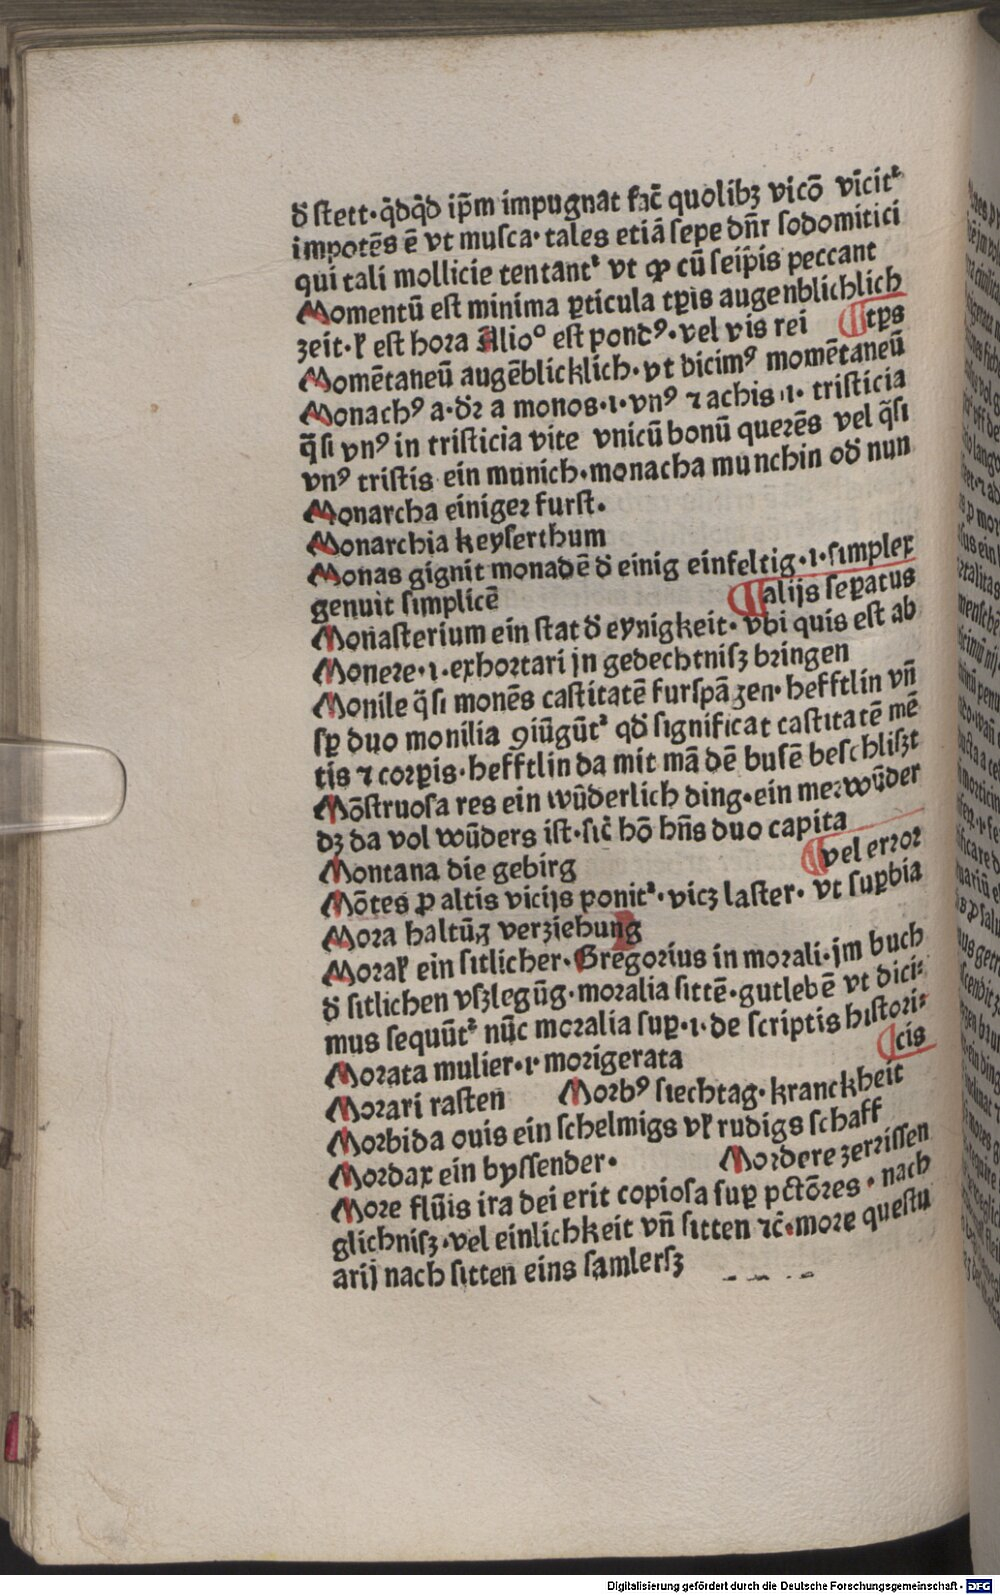 đ ſtett·q̄dq̄d ip̄m impugnat fac̄ quolibꝫ vicō vīcit᷒
impotēs ē vt muſca·tales etiā ſepe dn̄r ſodomitici
qui tali mollicie tentant᷒ vt ꝙ cū ſeip̄is peccant
Momentū eſt minima ꝑticula tꝑis augenblichlich
zeit·ł eſt hora Alioº eſt pondꝰ·vel vis rei ¶tꝑs
Momētaneū augēblicklich·vt dicimꝰ momētaneū
Monachꝰ a·dr̄ a monos·i·vnꝰ ⁊ achis·i·triſticia
q̄ſi vnꝰ in triſticia vite vnicū bonū querēs vel q̄ſi
vnꝰ triſtis ein munich·monacha munchin od̄ nun
Monarcha einiger furſt·
Monarchia keyſerthum
Monas gignit monadē đ einig einfeltig·i·ſimplex
genuit ſimplicē ¶alijs ſeꝑatus
Monaſterium ein ſtat đ eynigkeit·vbi quis eſt ab
Monere·i·exhortari jn gedechtniſz bringen
Monile q̄ſi monēs caſtitatē furſpāgen·hefftlin vn̄
ſꝑ duo monilia ꝯiūgūt᷒ qd̄ ſignificat caſtitatē mē
tis ⁊ corꝑis·hefftlin da mit mā dē buſē beſchliſzt
Mōſtruoſa res ein wūderlich ding·ein merwūder
dꝫ da vol wūders iſt·ſic̄ hō hn̄s duo capita
Montana die gebirg ¶vel error
Mōtes ꝑ altis vicijs ponit᷒·vicꝫ laſter·vt ſuꝑbia
Mora haltūg verziehung
Moral ein ſitlicher·Gregorius in morali·jm buch
đ ſitlichen vſzlegūg·moralia ſittē·gutlebē vt dici⸗
mus ſequūt᷒ nūc moralia ſuꝑ·i·de ſcriptis hiſtori⸗
Morata mulier·i·morigerata ¶cis
Morari raſten Morbꝰ ſiechtag·kranckheit
Morbida ouis ein ſchelmigs vł rudigs ſchaff
Mordax ein byſſender· Mordere zerriſſen
More flūis ira dei erit copioſa ſuꝑ pctōres·nach
glichniſz·vel einlichkeit vn̄ ſitten ⁊c̄·more queſtu
arij nach ſitten eins ſamlerſz
Digitalisierung gefördert durch die Deutsche Forschungsgemeinschaft - DFG